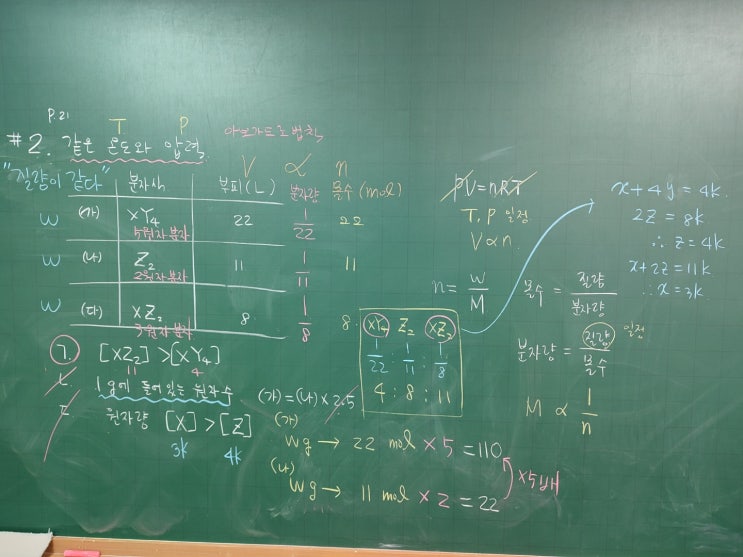 P.21
T P
#2. 같은 온도와 압력 아보가드로 법칙
"질량이 같다" 분자식 부피(L) V ∝ n 분자량 몰수(mol)
w (가) XY₄ 5원자 분자 22 1/22 22
w (나) Z₂ 2원자 분자 11 1/11 11
w (다) XZ₂ 3원자 분자 8 1/8 8
ㄱ. [XZ₂] > [XY₄]
11 4
ㄴ. 1g에 들어있는 원자 수 (가) = (나) × 2.5
ㄷ. 원자량 [X] > [Z]
3k 4k
XY₄ Z₂ XZ₂
1/22 : 1/11 : 1/8
4 : 8 : 11
(가)
Wg → 22 mol × 5 = 110
(나)
Wg → 11 mol × 2 = 22
×5배
PV = nRT
T, P 일정
V ∝ n
n = w/M 몰수 = 질량/분자량
분자량 = 질량/몰수 일정
M ∝ 1/n
x + 4y = 4k
2z = 8k
∴ z = 4k
x + 2z = 11k
∴ x = 3k